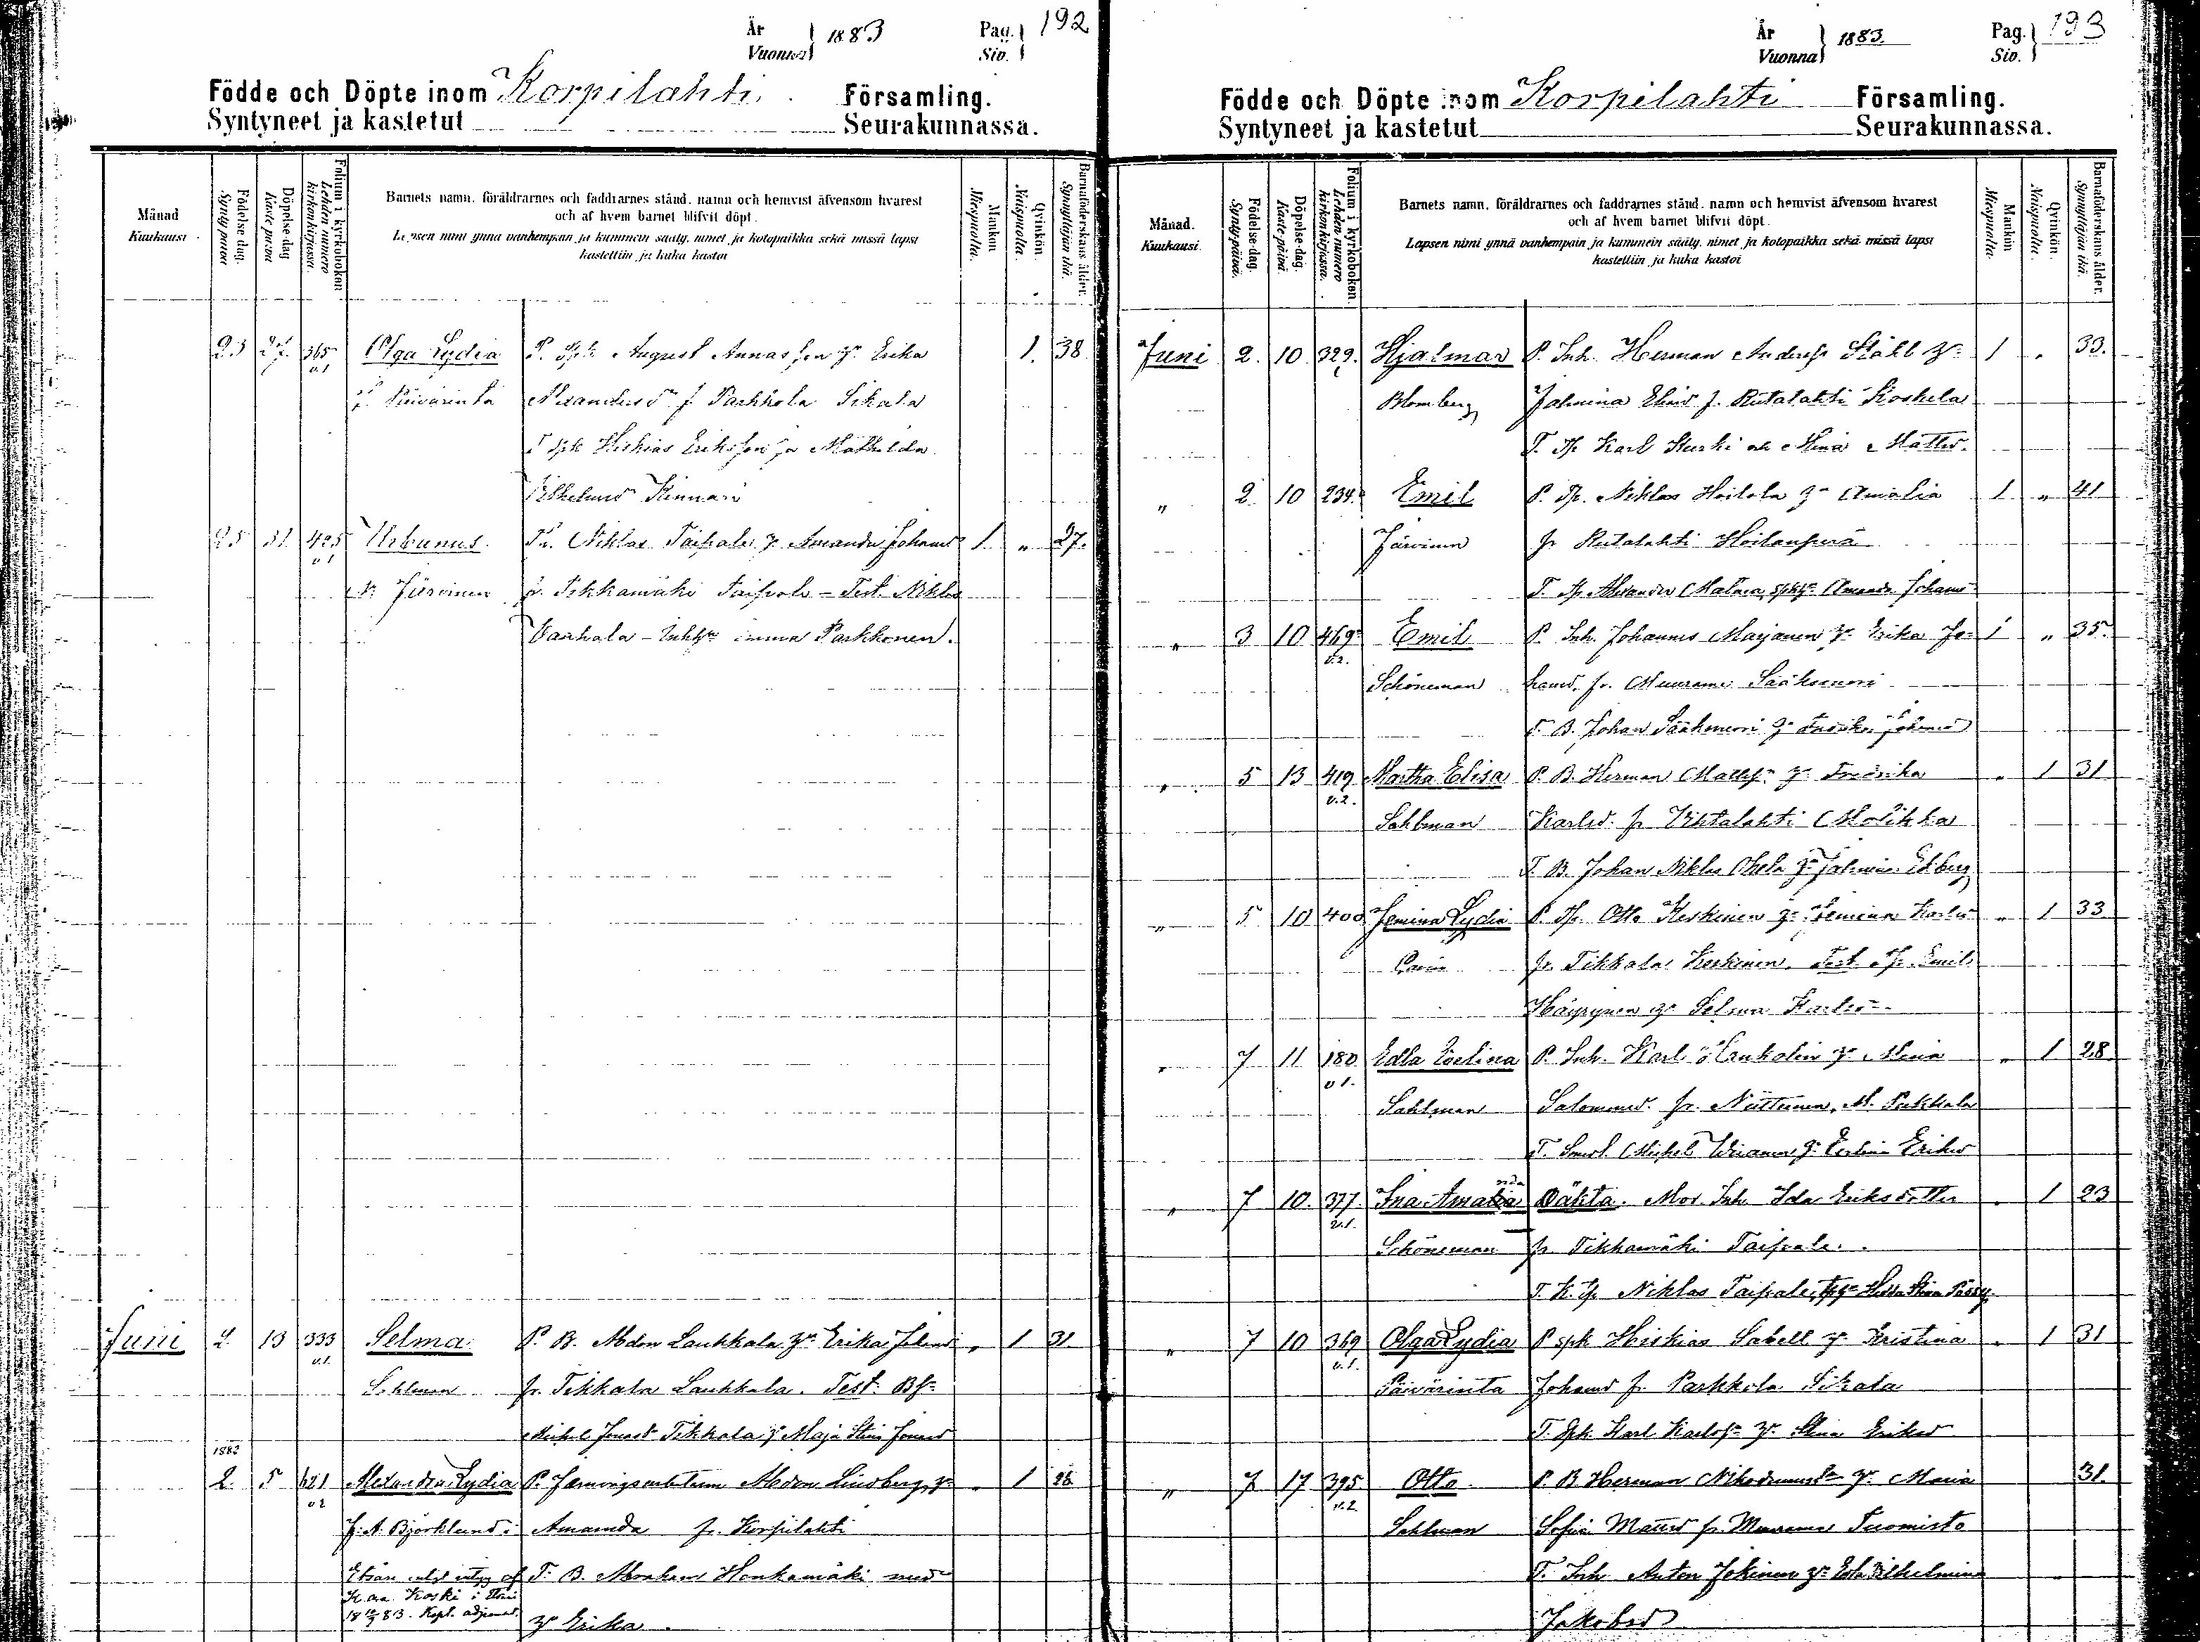 År
Vuonna
1883
Pag.
Siv.
192
Födde och Döpte inom Korpilahti Församling.
Syntyneet ja kastetut Seurakunnassa.
Månad
Kuukausi
Födelse-dag.
Synty-päivä
Döpelse-dag
Kaste-päivä
Folium i kyrkoboken
Lehden numero kirkonkirjassa.
Barnets namn, föräldrarnes och faddrarnes stånd, namn och hemvist äfvensom hvarest
och af hvem barnet blifvit döpt.
Lapsen nimi ynnä vanhempain ja kummein sääty, nimet ja kotopaikka sekä missä lapsi
kastettiin ja kuka kastoi
Mankön
Miespuolta.
Qvinkön.
Naispuolta.
Barnaföderskans ålder.
Synnyttäjän ikä.
23 27. 365 v.1 Olga Lydia P. Spk August Annasson hu Erika 1. 38
Päivärinta Alexandersd. fr Parkkola Sikala
T Spk Hiskias Eriksson ja Mathilda
Vilhelmsd Kinnari
25 31 425 v 1 Urbanus Niklas Taipale hu Amanda Johansd 1 " 27.
Järvinen fr. Tikkamäki Taipale - Test. Niklas
Vanhala - Inhhu Emma Parkkonen.
Juni 2 13 333 v.1. Selma P. B. Abdon Laukkala hu Erika Johansd " 1 31.
Sahlman fr. Tikkala Laukkala. Test. Bs
Michel Jonass Tikkala hu Maja Stina Jonasd
1882
2 5 621 v 2 Alexandra Lydia P. Abdon Lindberg hu " 1 26
J. A. Björklund Amanda fr. Korpilahti
T. B. Abraham Honkamäki med
Koski i
18 83. Kapl. adjunct. hu Erika
År
Vuonna
1883.
Pag.
Siv.
193
Födde och Döpte inom Korpilahti Församling.
Syntyneet ja kastetut Seurakunnassa.
Månad.
Kuukausi.
Födelse-dag.
Synty-päivä.
Döpelse-dag.
Kaste-päivä.
Folium i kyrkoboken.
Lehden numero kirkonkirjassa.
Barnets namn, föräldrarnes och faddrarnes stånd, namn och hemvist äfvensom hvarest
och af hvem barnet blifvit döpt.
Lapsen nimi ynnä vanhempain ja kummein sääty, nimet ja kotopaikka sekä missä lapsi
kastettiin ja kuka kastoi
Mankön
Miespuolta.
Qvinkön.
Naispuolta.
Barnaföderskans ålder.
Synnyttäjän ikä.
Juni 2. 10 329. Hjalmar P. Inh. Herman Anderss. Ståhl hu 1 " 33.
Blomberg Jahnina Eliasd fr. Rutalahti Koskela
T. Tp Karl Kurki och Stina Mattsd.
" 2 10 234. Emil P. Tp. Niklas Hoilola hu Amalia 1 " 41
Järvinen fr Rutalahti Hoilanperä
T. Tp Alexander Matsson, Spkhu Amanda Johansd
" 3 10 469 v.2. Emil P. Inh. Johannes Marjanen hu Erika Jo- 1 " 35.
Schöneman hansd. fr. Muurame Sääksvuori
T. B. Johan Sääksvuori hu Fredrika Johansd
" 5 13 419 v.2. Martha Elisa P. B. Herman Mattss. hu Fredrika " 1 31
Sahlman Karlsd. fr Vihtalahti Molikka
T. B. Johan Niklas Ohela hu Jahnina Edberg
" 5 10 400 Jemina Lydia P. Tp. Otto Keskinen hu Jemina Karlsd " 1 33
fr. Tikkala Keskinen. Test. Tp. Emil
Häyrynen hu Selma Karlsd
" 7 11 180 v 1. Edla Evelina P. Inh. Karl Erukalin hu Stina " 1 28
Sahlman Salomonsd. fr. Niittunen, M. Pukkala
T. Michel hu Eriksd
" 7 10. 377. v.1. Ina Amanda Oäkta. Mor Inh Ida Eriksdotter " 1 23
Schöneman fr Tikkamäki Taipale.
T. K. Tp Niklas Taipale, Tphu Hedda Stina Pässy.
" 7 10 369 v.1. Olga Lydia P spk Hiskias Sabell hu Kristina " 1 31
Päivärinta Johansd fr. Parkkola Sikala
T. Spk Karl Karlss. hu Stina Eriksd
" 7 17 395 v.2 Otto P. B Herman Nikodemuss. hu Maria 31.
Sahlman Sofia Mattsd fr. Muurame Tuomisto
T. Inh. Anton Jokinen hu Eva Vilhelmina
Jakobsd